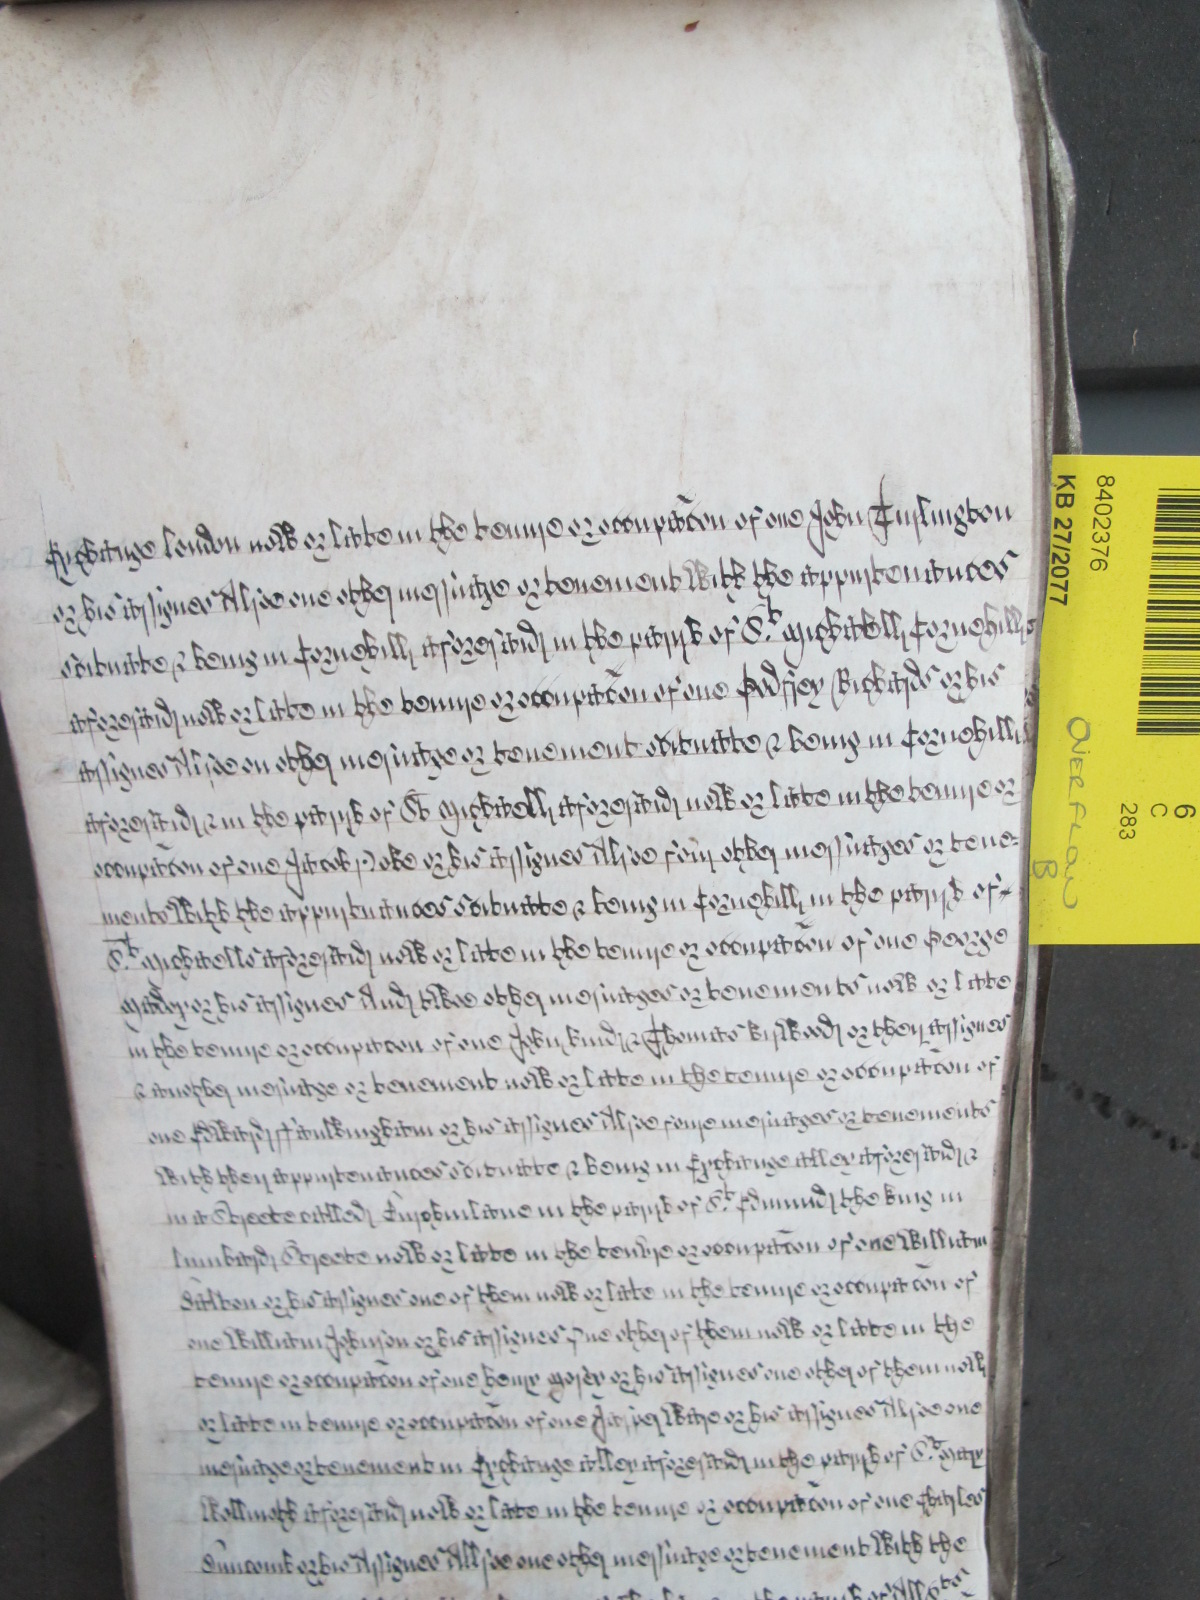 Exchange London now or late in the tenure or occupac͠on of one John Turlington
or his assignes Alsoe one other messuage or tenement with the appurtenances
scituate & being in Cornehill aforesaid in the parish of St. Michaell Cornehill
aforesaid now or late in the tenure or occupac͠on of one Godfrey Richards or his
assignes Alsoe on other messuage or tenement scituate & being in Cornehill
aforesaid & in the parish of St Michaell aforesaid now or late in the tenure or
occupac͠on of one Jacob or his assignes Alsoe four other messuages or tene=
ments with the appurtenances scituate & being in Cornehill in the parish of
St. Michaells aforesaid now or late in the tenure or occupac͠on of one George
or his assignes And twoe other messuages or tenements now or late
in the tenure or occupac͠on of one John & Thomas Kirwood or their assignes
& another messuage or tenement now or late in the tenure or occupac͠on of
one Edward or his assignes Alsoe foure messuages or tenements
with their appurtenances scituate & being in Exchange alley aforesaid &
in a Streete called Burchinlane in the parish of St. Edmund the king in
Lumbard Streete now or late in the tenure or occupac͠on of one William
or his assignes one of them now or late in the tenure or occupac͠on of
one William Johnson or his assignes One other of them now or late in the
tenure or occupac͠on of one henry or his assignes one other of them now
or late in tenure or occupac͠on of one or his assignes Alsoe one
messuage or tenement in Exchange alley aforesaid in the parish of St. Mary
Wollnoth aforesaid now or late in the tenure or occupac͠on of one Charles
Duncomb or his Assignes Alsoe one other messuage or tenement with the
8402376
KB 27/2077
6
C
283
OVERFLOW
B